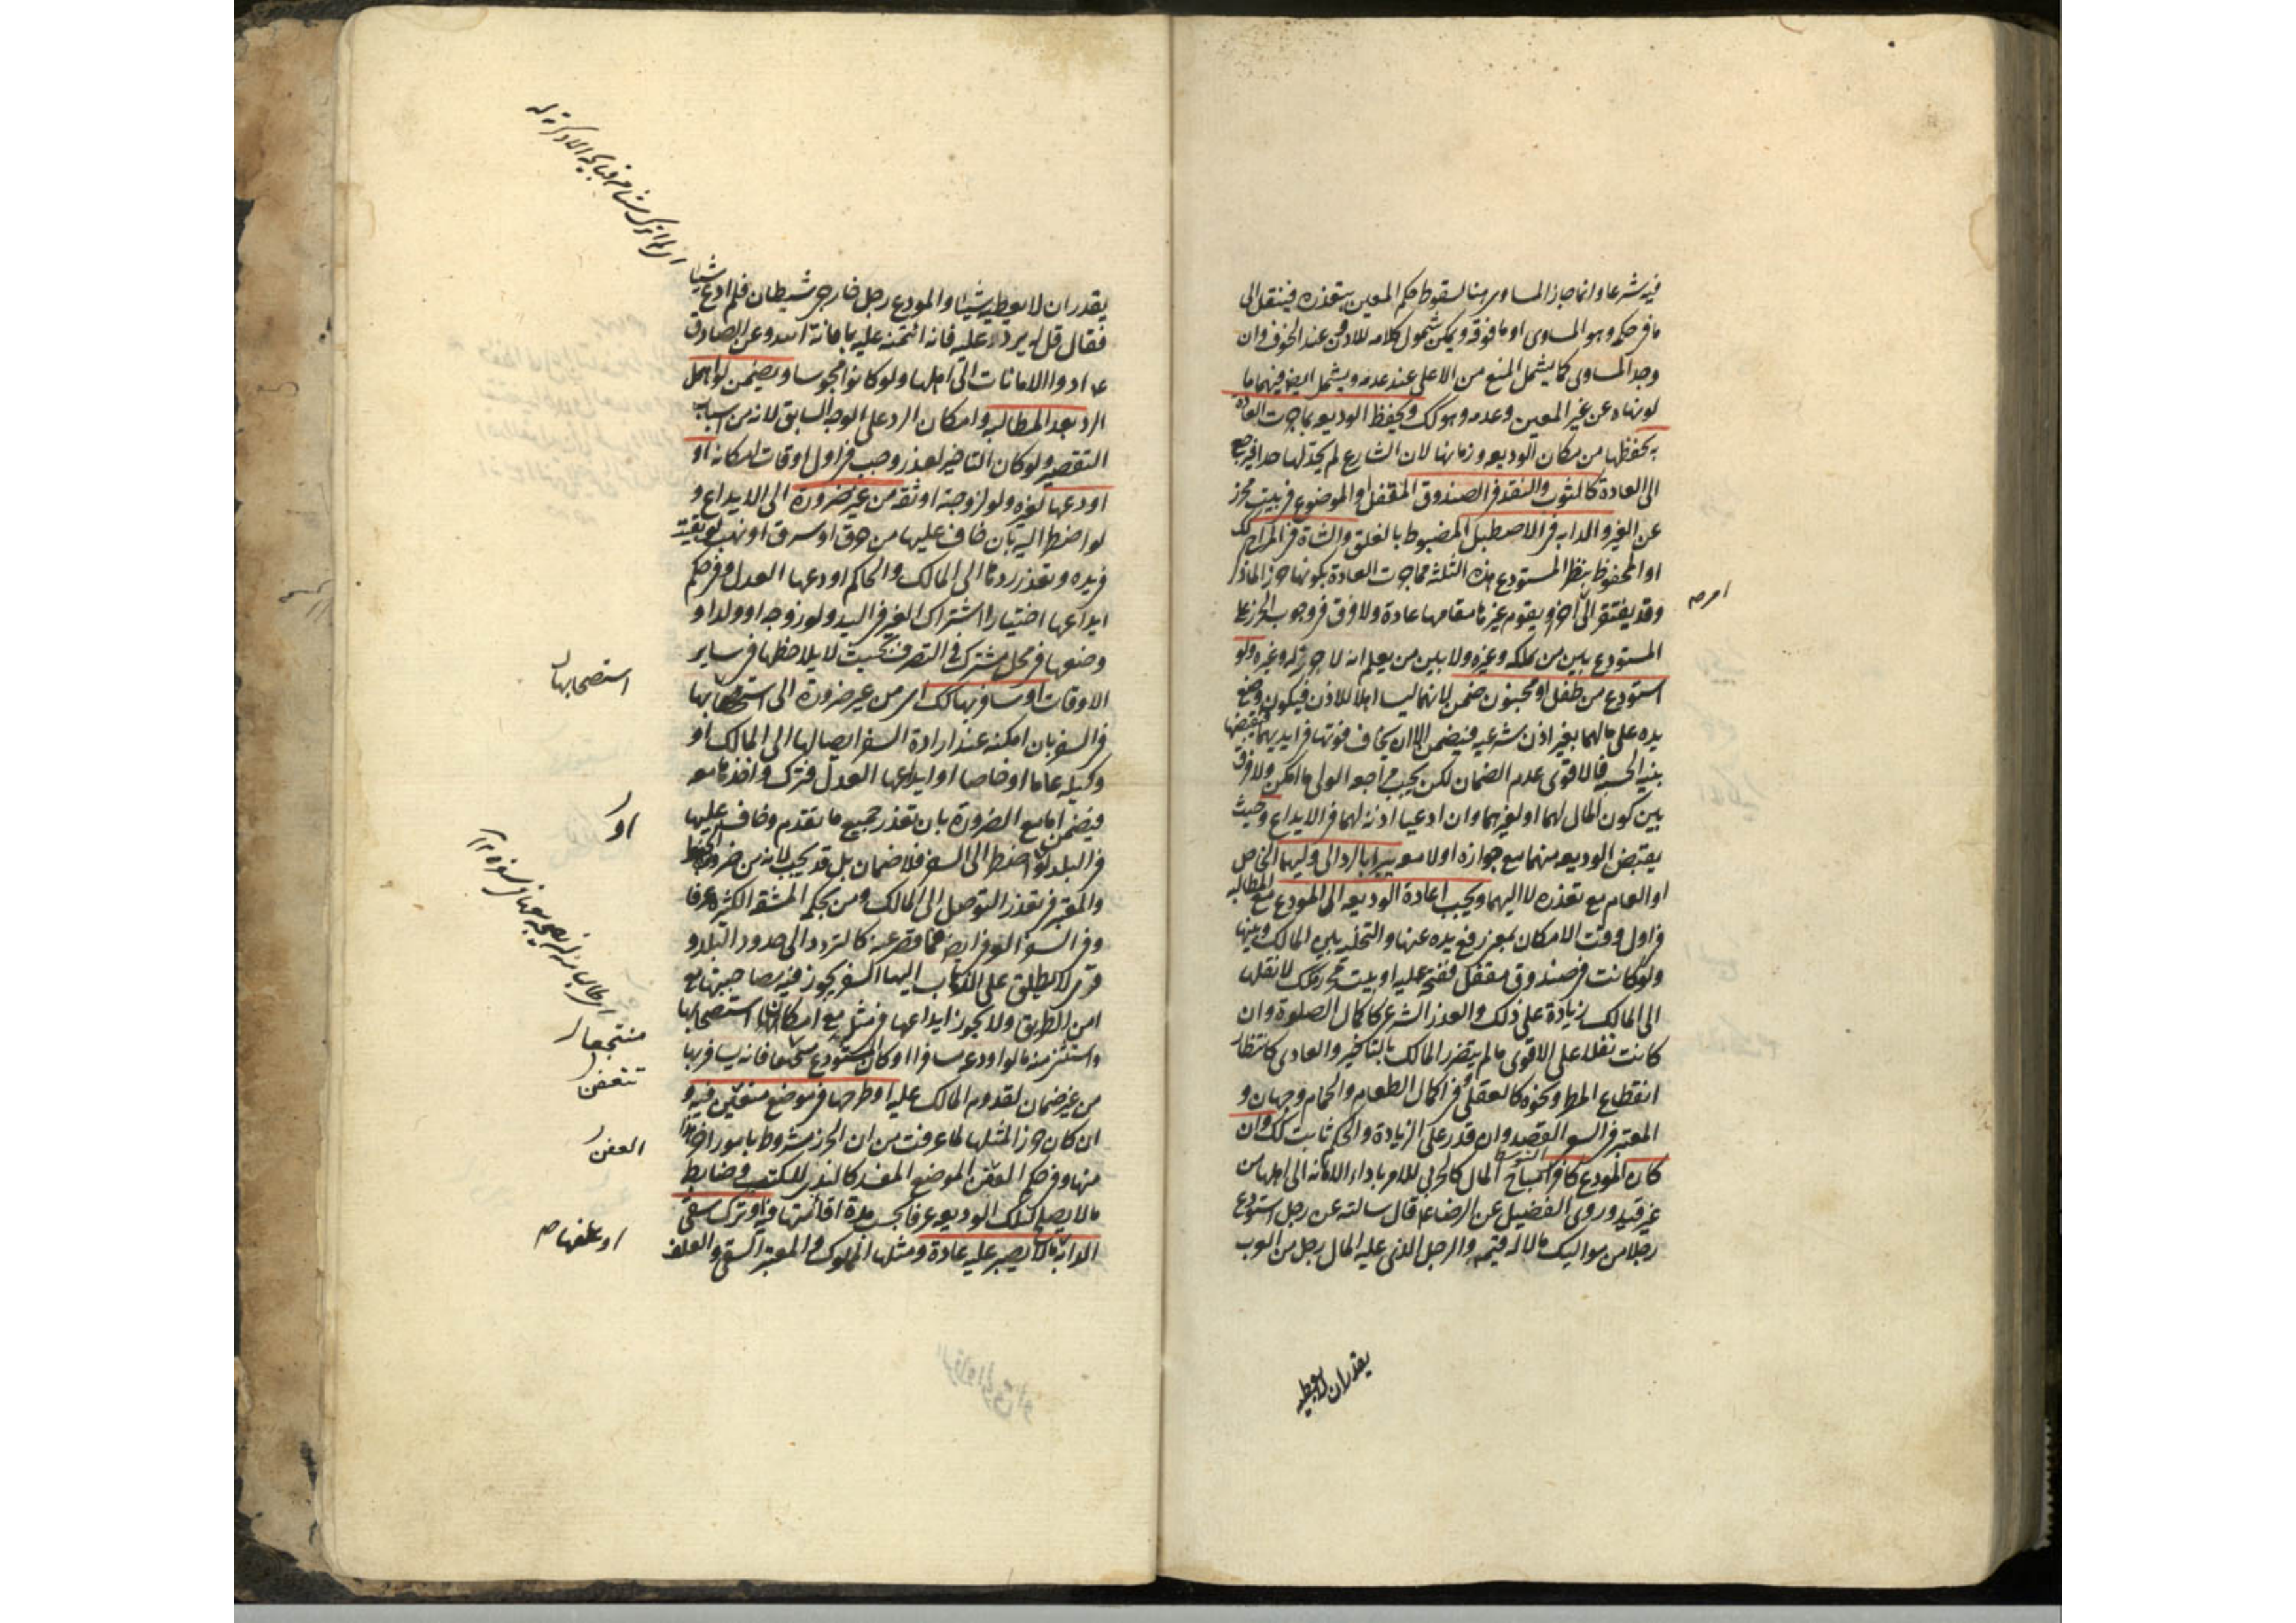 فيه شرعا وانما جاز المساوي هنا لسقوط حكم المعين بتعذره فينتقل الى
ما في حكمه وهو المساوى او ما فوقه ويمكن شمول كلامه للادون عند الخوف وان
وجد المساوى كما يشمل المنع من الاعلى عند عدمه ويشمل ايضا فيهما ما
لو نهاه عن غير المعين وعدمه وهو كك ويحفظ الوديعه بما جرت العادة
به بحفظها من مكان الوديعه وزمانها لان الشارع لم يحد لها حدا فيرجع
الى العادة كالثوب والنقد في الصندوق المقفل او الموضوع في بيت محرز
عن الغير والدابه في الاصطبل المضبوط بالغلق والشاة في المراح كك
او المحفوظ بنظر المستودع هذه الثلثة مما جرت العادة بكونها حرزا لما ذكر
وقد يفتقر الى آخر ويقوم غيرها مقامها عادة ولا فرق في وجوب الحرز على
المستودع بين من يملكه وغيره ولا بين من يعلم انه لا حرز له وغيره ولو
استودع من طفل او مجنون ضمن لانهما ليسا اهلا للاذن فيكون وضع
يده على مالهما بغير اذن شرعيه فيضمن الا ان يخاف فوتها في ايديهما فيقبضها
بنيه الحسبه فالاقوى عدم الضمان لكن يجب مراجعه الولى ما امكن ولا فرق
بين كون المال لهما او لغيرهما وان ادعيا اذنه لهما في الايداع وحيث
يقبض الوديعه منهما مع جوازه او لا معه يبرا بالرد الى وليهما الخاص
او العام مع تعذره لا اليهما ويجب اعادة الوديعه الى المودع مع المطالبه
في اول وقت الامكان بمعنى رفع يده عنها والتخليه بين المالك وبينها
ولو كانت في صندوق مقفل ففتحه عليه او بيت محرز كك لا نقلها
الى المالك زيادة على ذلك والعذر الشرعي كاكمال الصلوة وان
كانت نفلا على الاقوى ما لم يتضرر المالك بالتاخير والعادى كانتظار
انقطاع المطر ونحوه كالعقلى وفي اكمال الطعام والحمام وجهان و
المعتبر في السعي القصد وان قدر على الزيادة والحكم ثابت كك وان
كان المودع كافرا مباح المال كالحربي للامر باداء الامانه الى اهلها من
غير قيد وروى الفضيل عن الرضا ع قال سالته عن رجل استودع
رجلا من مواليك مالا له قيمه والرجل الذى عليه المال رجل من العرب
امر ص
يقدر ان لا يعطيه
يقدر ان لا يعطيه شيئا والمودع رجل خارجي شيطان فلم ادع شيئا
فقال قل له يرد عليه فانه ائتمنه عليه بامانة الله وعن الصادق
ع ادوا الامانات الى اهلها ولو كانوا مجوسا ويضمن لو اهمل
الرد بعد المطالبه وامكان الرد على الوجه السابق لانه من اسباب
التقصير ولو كان التاخير لعذر وجب في اول اوقات امكانه او
اودعها لغيره ولو لزوجة او ثقه من غير ضرورة الى الايداع و
لو اضطر اليه بان خاف عليها من حرق او سرق او نهب لو بقيت
في يده وتعذر ردها الى المالك والحاكم اودعها العدل وفي حكم
ايداعها اختيارا اشتراك الغير في اليد ولو زوجه او ولدا و
وضعها في محل مشترك في التصرف بحيث لا يلاحظها في ساير
الاوقات او سافر بها كك اى من غير ضرورة الى استصحابها
في السفر بان امكنه عند ارادة السفر ايصالها الى المالك او
وكيله عاما او خاصا او ايداعها العدل فترك واخذها معه
فيضمن اما مع الضرورة بان تعذر جميع ما تقدم وخاف عليها
في البلد او اضطر الى السفر فلا ضمان بل قد يجب لانه من ضروب الحفظ
والمعتبر في تعذر التوصل الى المالك ومن بحكمه المشقه الكثيره عرفا
وفي السفر العرفي ايضا فما قصر عنه كالتردد الى حدود البلد و
قرى لا يطلق على الذهاب اليها السفر يجوز فيه مصاحبتها مع
امن الطريق ولا يجوز ايداعها في مثله مع امكان استصحابها
واستثنى منه ما لو اودعه مسافرا او كان المستودع منتجعا فانه يسافر بها
من غير ضمان لقدوم المالك عليه او طرحها في موضع تتعفن فيه و
ان كان حرزا لمثلها لما عرفت من ان الحرز مشروط بامور اخر هذا
منها وفي حكم العفن الموضع المفسد كالندى للكتب وضابطه
ما لا يصلح لتلك الوديعه عرفا بحسب مدة اقامتها فيه او ترك سقى
الدابه ما لا يصبر عليه عادة ومثلها المملوك والمعتبر السقى والعلف
استصحابها
او
منتجعا
تتعفن
العفن
او علفها ص